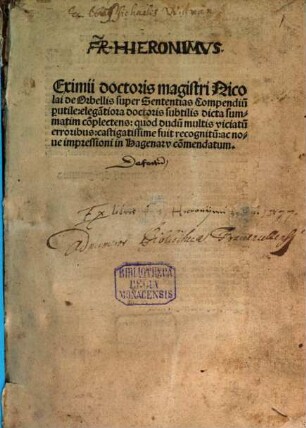 FR·HIERONIMVS·
Eximii doctoris magistri Nico
lai de Orbellis super Sententias Compendiū
putile: elegātiora doctoris subtilis dicta sum
matim cōplectens: quod dudū multis viciatū
erroribus: castigatissime fuit recognitū: ac no
ue impressioni in Hagenaw cōmendatum.
Ex libris Hieronymi
BIBLIOTHECA
REGIA
MONACENSIS